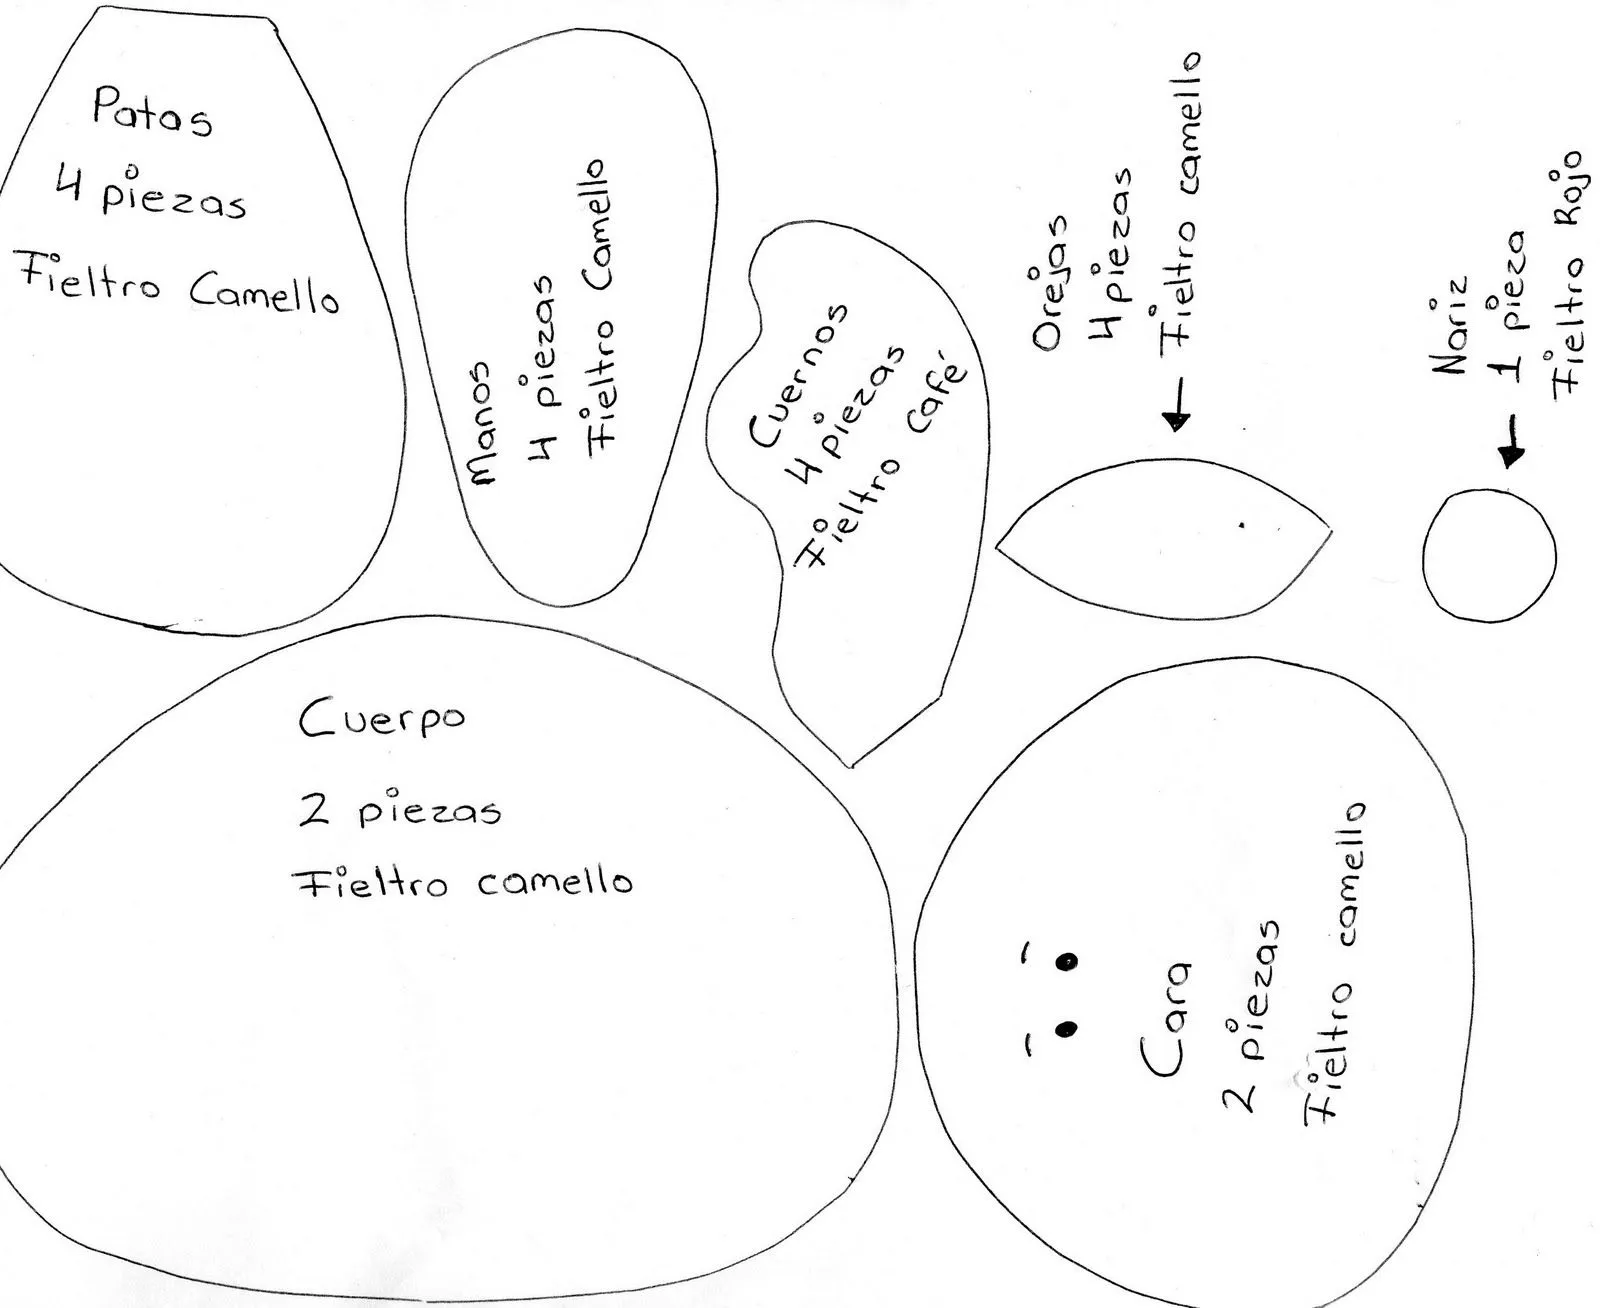 Patas
4 piezas
Fieltro Camello
Manos
4 piezas
Fieltro Camello
Cuernos
4 piezas
Fieltro Café
Orejas
4 piezas
Fieltro camello
Nariz
1 pieza
Fieltro Rojo
Cuerpo
2 piezas
Fieltro camello
Cara
2 piezas
Fieltro camello